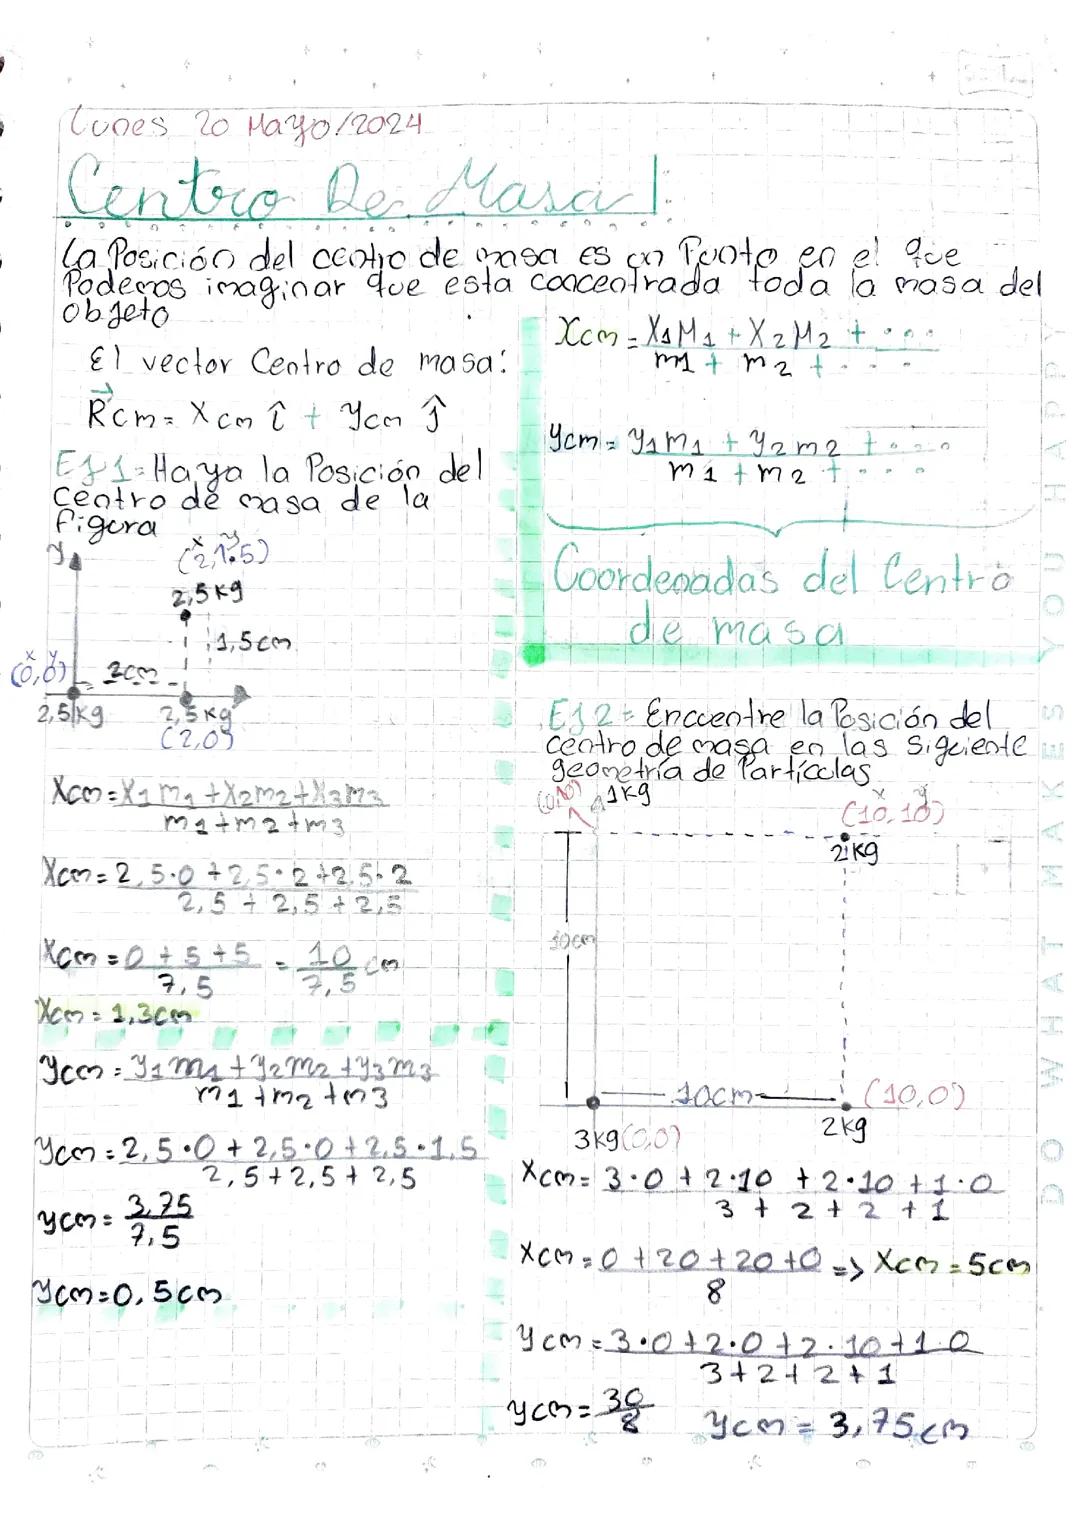 Lunes 20 Mayo/2024
Centro De Masa
La Posición del centro de masa es un Punto en el que
Podemos imaginar que esta concentrada toda la masa del
objeto
El vector Centro de masa:
Rcm = Xcm î + Ycm ĵ
Xcm = X1M1 + X2M2 + ...
m1 + m2 + ...
Ycm = y1m1 + y2m2 + ...
m1 + m2 + ...
Coordenadas del Centro
de masa
EJ 1 = Haya la Posición del
centro de masa de la
figura
y
x y
(2,1.5)
2,5 kg
1,5cm
x y
(0,0)
2cm
2,5 kg
2,5 kg
(2,0)
Xcm = X1m1 + X2m2 + X3m3
m1 + m2 + m3
Xcm = 2,5·0 + 2,5·2 + 2,5·2
2,5 + 2,5 + 2,5
Xcm = 0 + 5 + 5 = 10 cm
7,5 7,5
Xcm = 1,3cm
Ycm = y1m1 + y2m2 + y3m3
m1 + m2 + m3
Ycm = 2,5·0 + 2,5·0 + 2,5·1,5
2,5 + 2,5 + 2,5
ycm = 3,75
7,5
Ycm = 0,5cm
EJ 2 = Encuentre la Posición del
centro de masa en las siguiente
geometría de Partículas
1kg
x y
(10,10)
2kg
10cm
10cm
(10,0)
3kg (0,0)
2kg
Xcm = 3·0 + 2·10 + 2·10 + 1·0
3 + 2 + 2 + 1
Xcm = 0 + 20 + 20 + 0 => Xcm = 5cm
8
Ycm = 3·0 + 2·0 + 2·10 + 1·0
3 + 2 + 2 + 1
ycm = 30
8
ycm = 3,75cm
DO WHAT MAKES YOU HAPPY